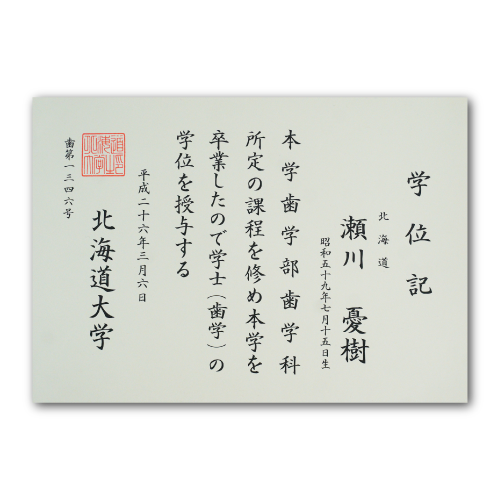 学位記
北海道
瀬川 憂樹
昭和五十九年七月十五日生
本学歯学部歯学科
所定の課程を修め本学を
卒業したので学士(歯学)の
学位を授与する
平成二十六年三月六日
北海道大学
歯第一三四六号